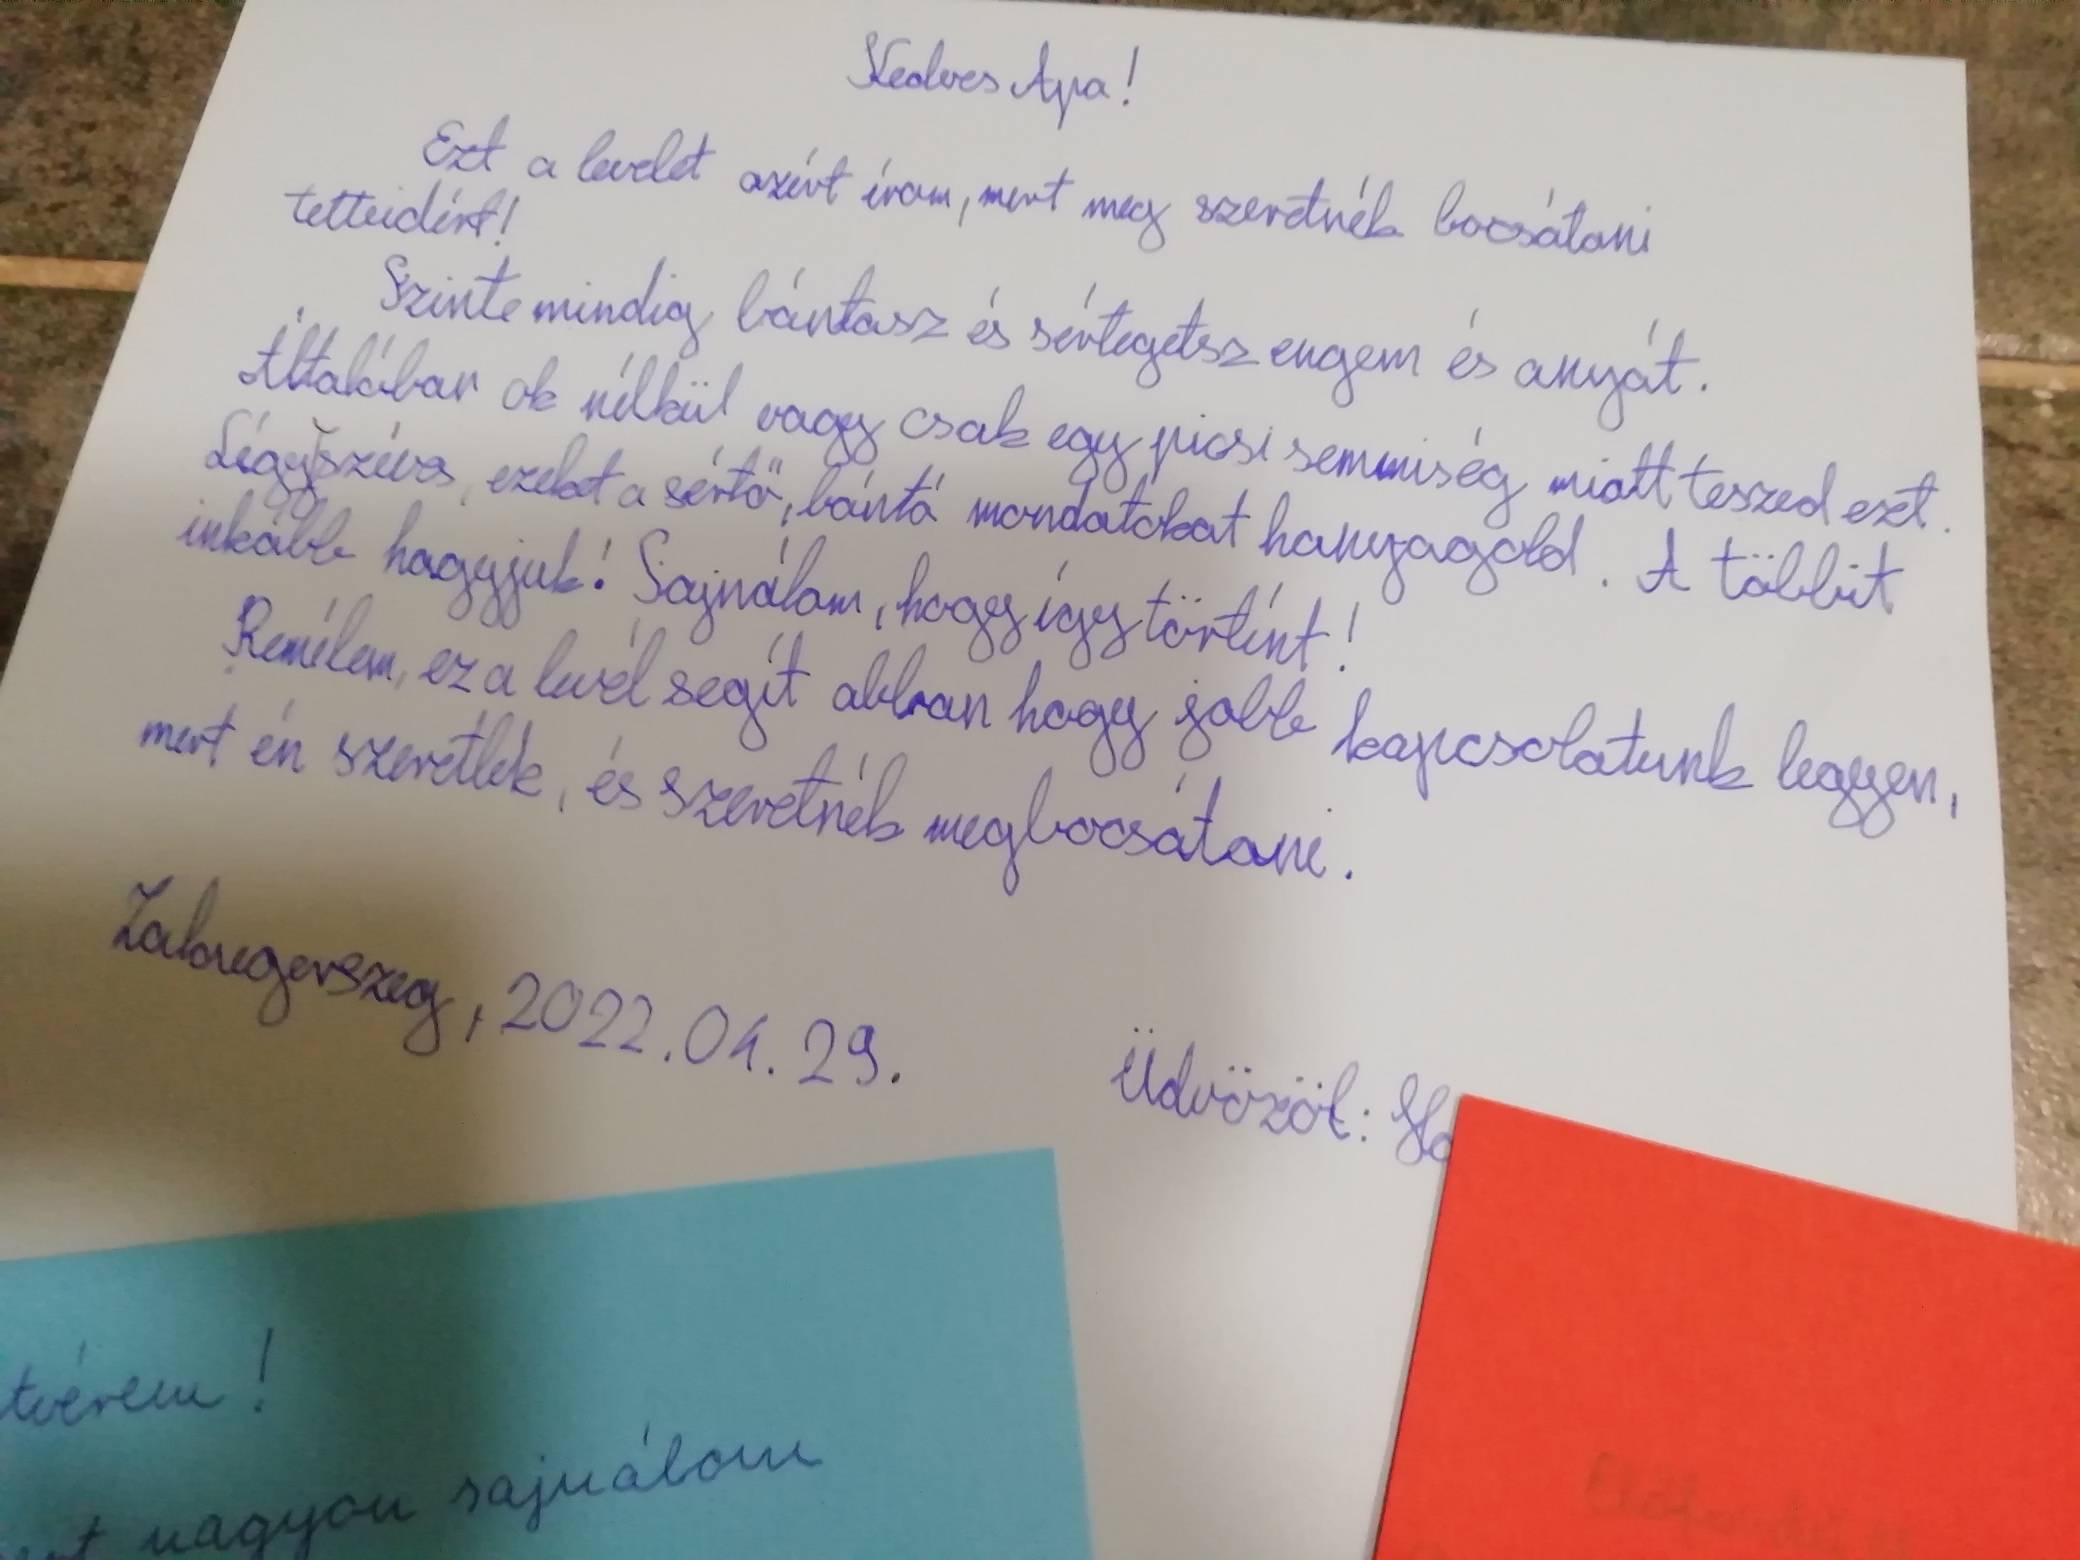 Kedves Apa!
Ezt a levelet azért írom, mert meg szeretnék bocsátani
tetteidért!
Szinte mindig bántasz és sértegetsz engem és anyát.
Általában ok nélkül vagy csak egy picsi semmiség miatt teszed ezt.
Légyszíves, ezeket a sértő, bántó mondatokat hanyagold. A többit
inkább hagyjuk! Sajnálom, hogy így történt!
Remélem, ez a levél segít abban hogy jobb kapcsolatunk legyen,
mert én szeretlek, és szeretnék megbocsátani.
Zalaegerszeg, 2022.04.29.
Üdvözöl: Ho
tvérem!
nagyon sajnálom